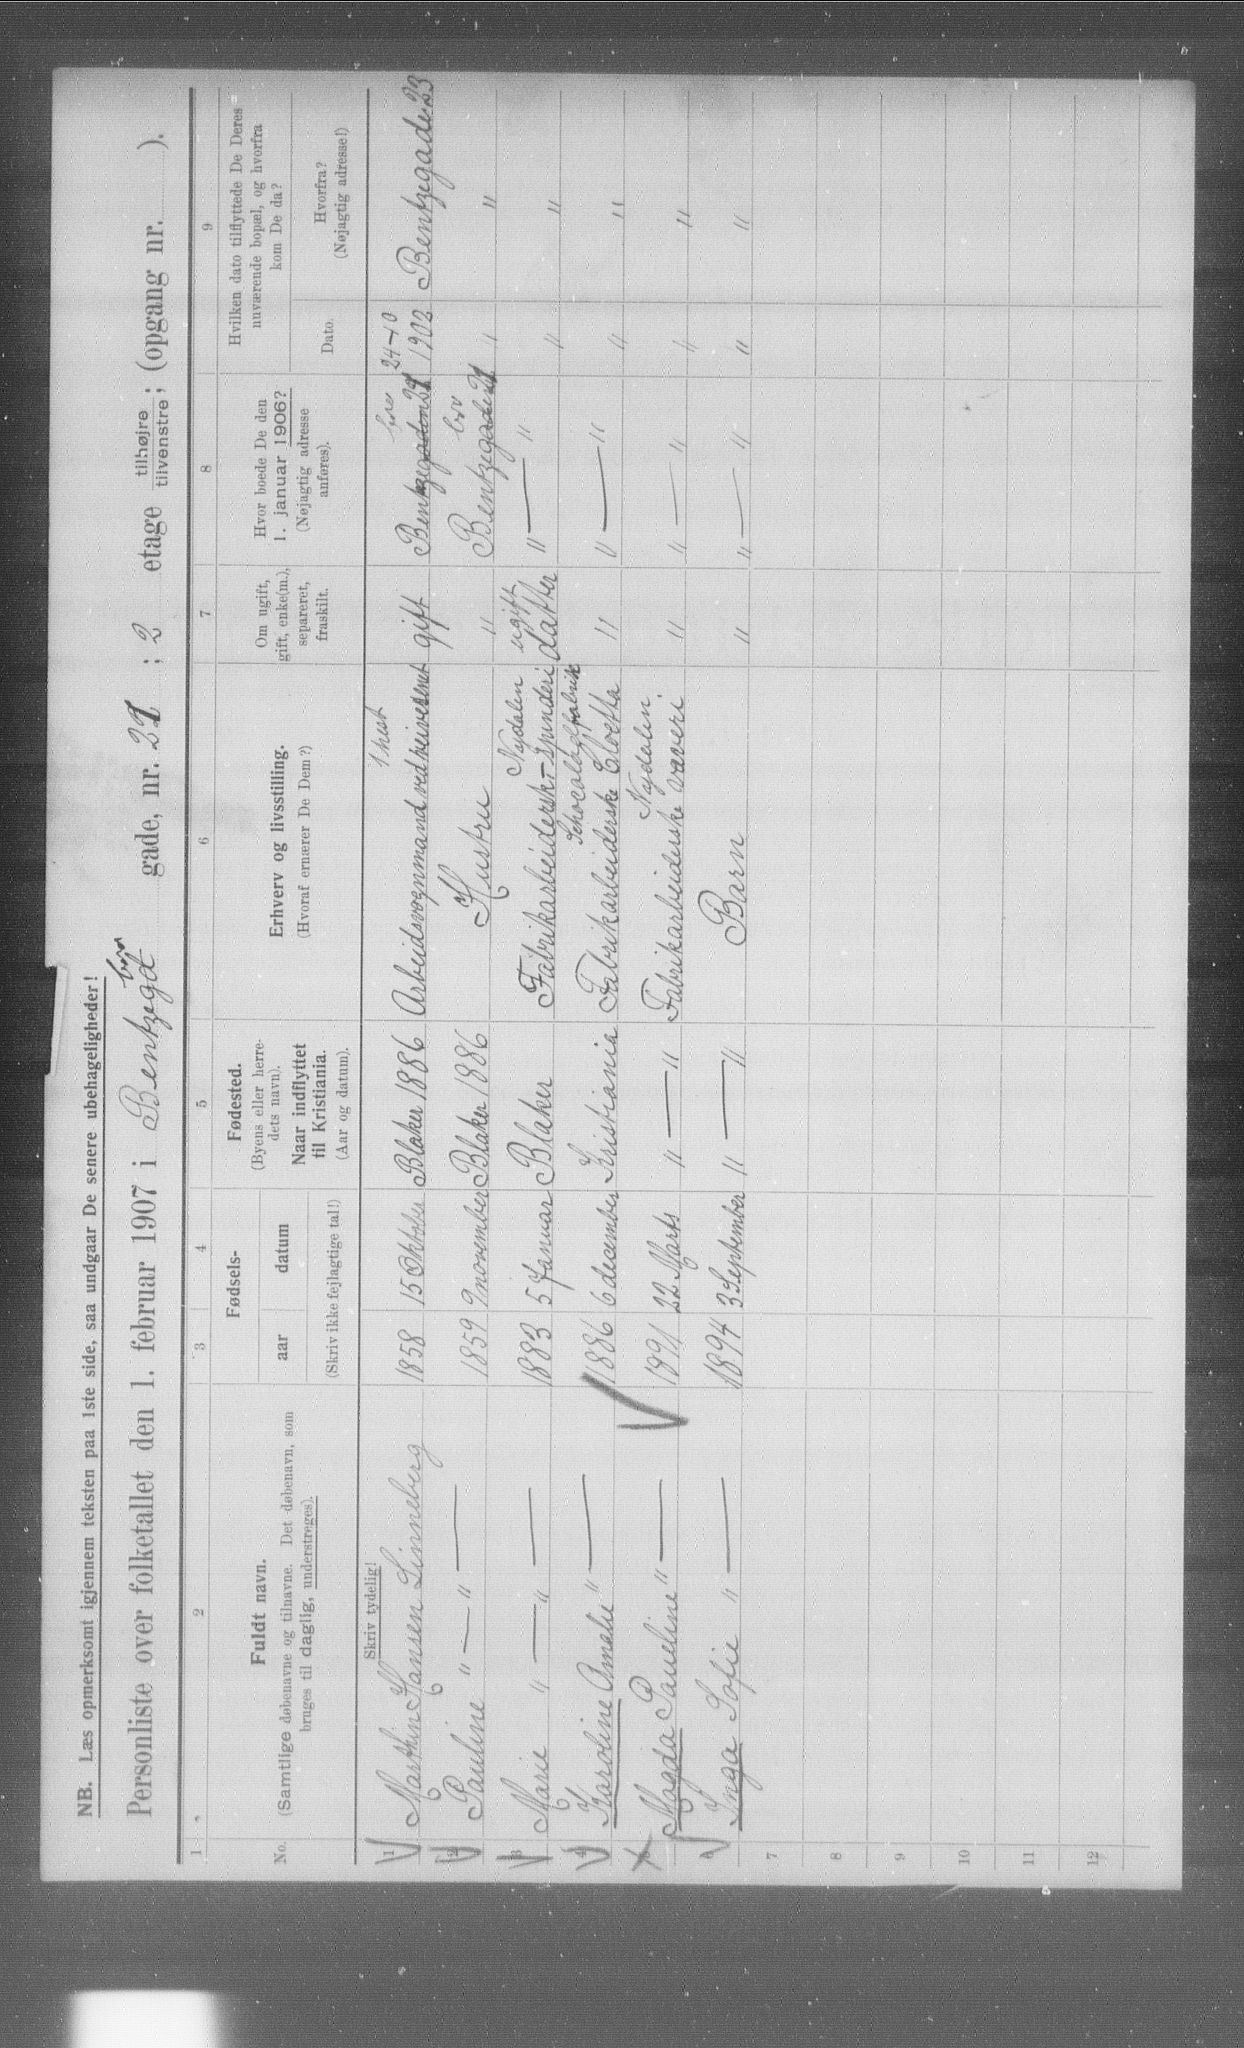 NB. Læs opmerksomt igjennem teksten paa 1ste side, saa undgaar De senere ubehageligheder!
Personliste over folketallet den 1. februar 1907 i Bentzegd gade, nr. 21; 2 etage tilhøjre tilvenstre; (opgang nr. ).
1 2 3 4 5 6 7 8 9
No.
Fuldt navn.
(Samtlige døbenavne og tilnavne. Det døbenavn, som
bruges til daglig, understreges).
Fødsels-
aar datum
(Skriv ikke fejlagtige tal!)
Fødested.
(Byens eller herre-
dets navn).
Naar indflyttet
til Kristiania.
(Aar og datum).
Erhverv og livsstilling.
(Hvoraf ernærer De Dem?)
Om ugift,
gift, enke(m.),
separeret,
fraskilt.
Hvor boede De den
1. januar 1906?
(Nøjagtig adresse
anføres).
Hvilken dato tilflyttede De Deres
nuværende bopæl, og hvorfra
kom De da?
Dato.
Hvorfra?
(Nøjagtig adresse!)
Skriv tydelig!
1 hest 24-10
1 Marthin Hansen Linneberg 1858 15 Oktober Blaker 1886 Arbeidsvognmand gift 1902 Bentzegade 23
2 Pauline " — " — 1859 9 november Blaker 1886 Hustru " Bentzegade " "
Nydalen ugift
3 Marie " — " — 1883 5 Januar Blaker Fabrikarbeiderske Spinderi datter " — " " "
Schocoladefabrik
4 Karoline Amalie " — 1886 6 december Kristiania Fabrikarbeiderske Cloetta " " — " " "
Nydalen
5 Magda Pauline " — 1891 22 Marts " — " Fabrikarbeiderske væveri " " — " " "
6 Inga Sofie " — 1894 3 September " — " Barn " " — " " "
7
8
9
10
11
12